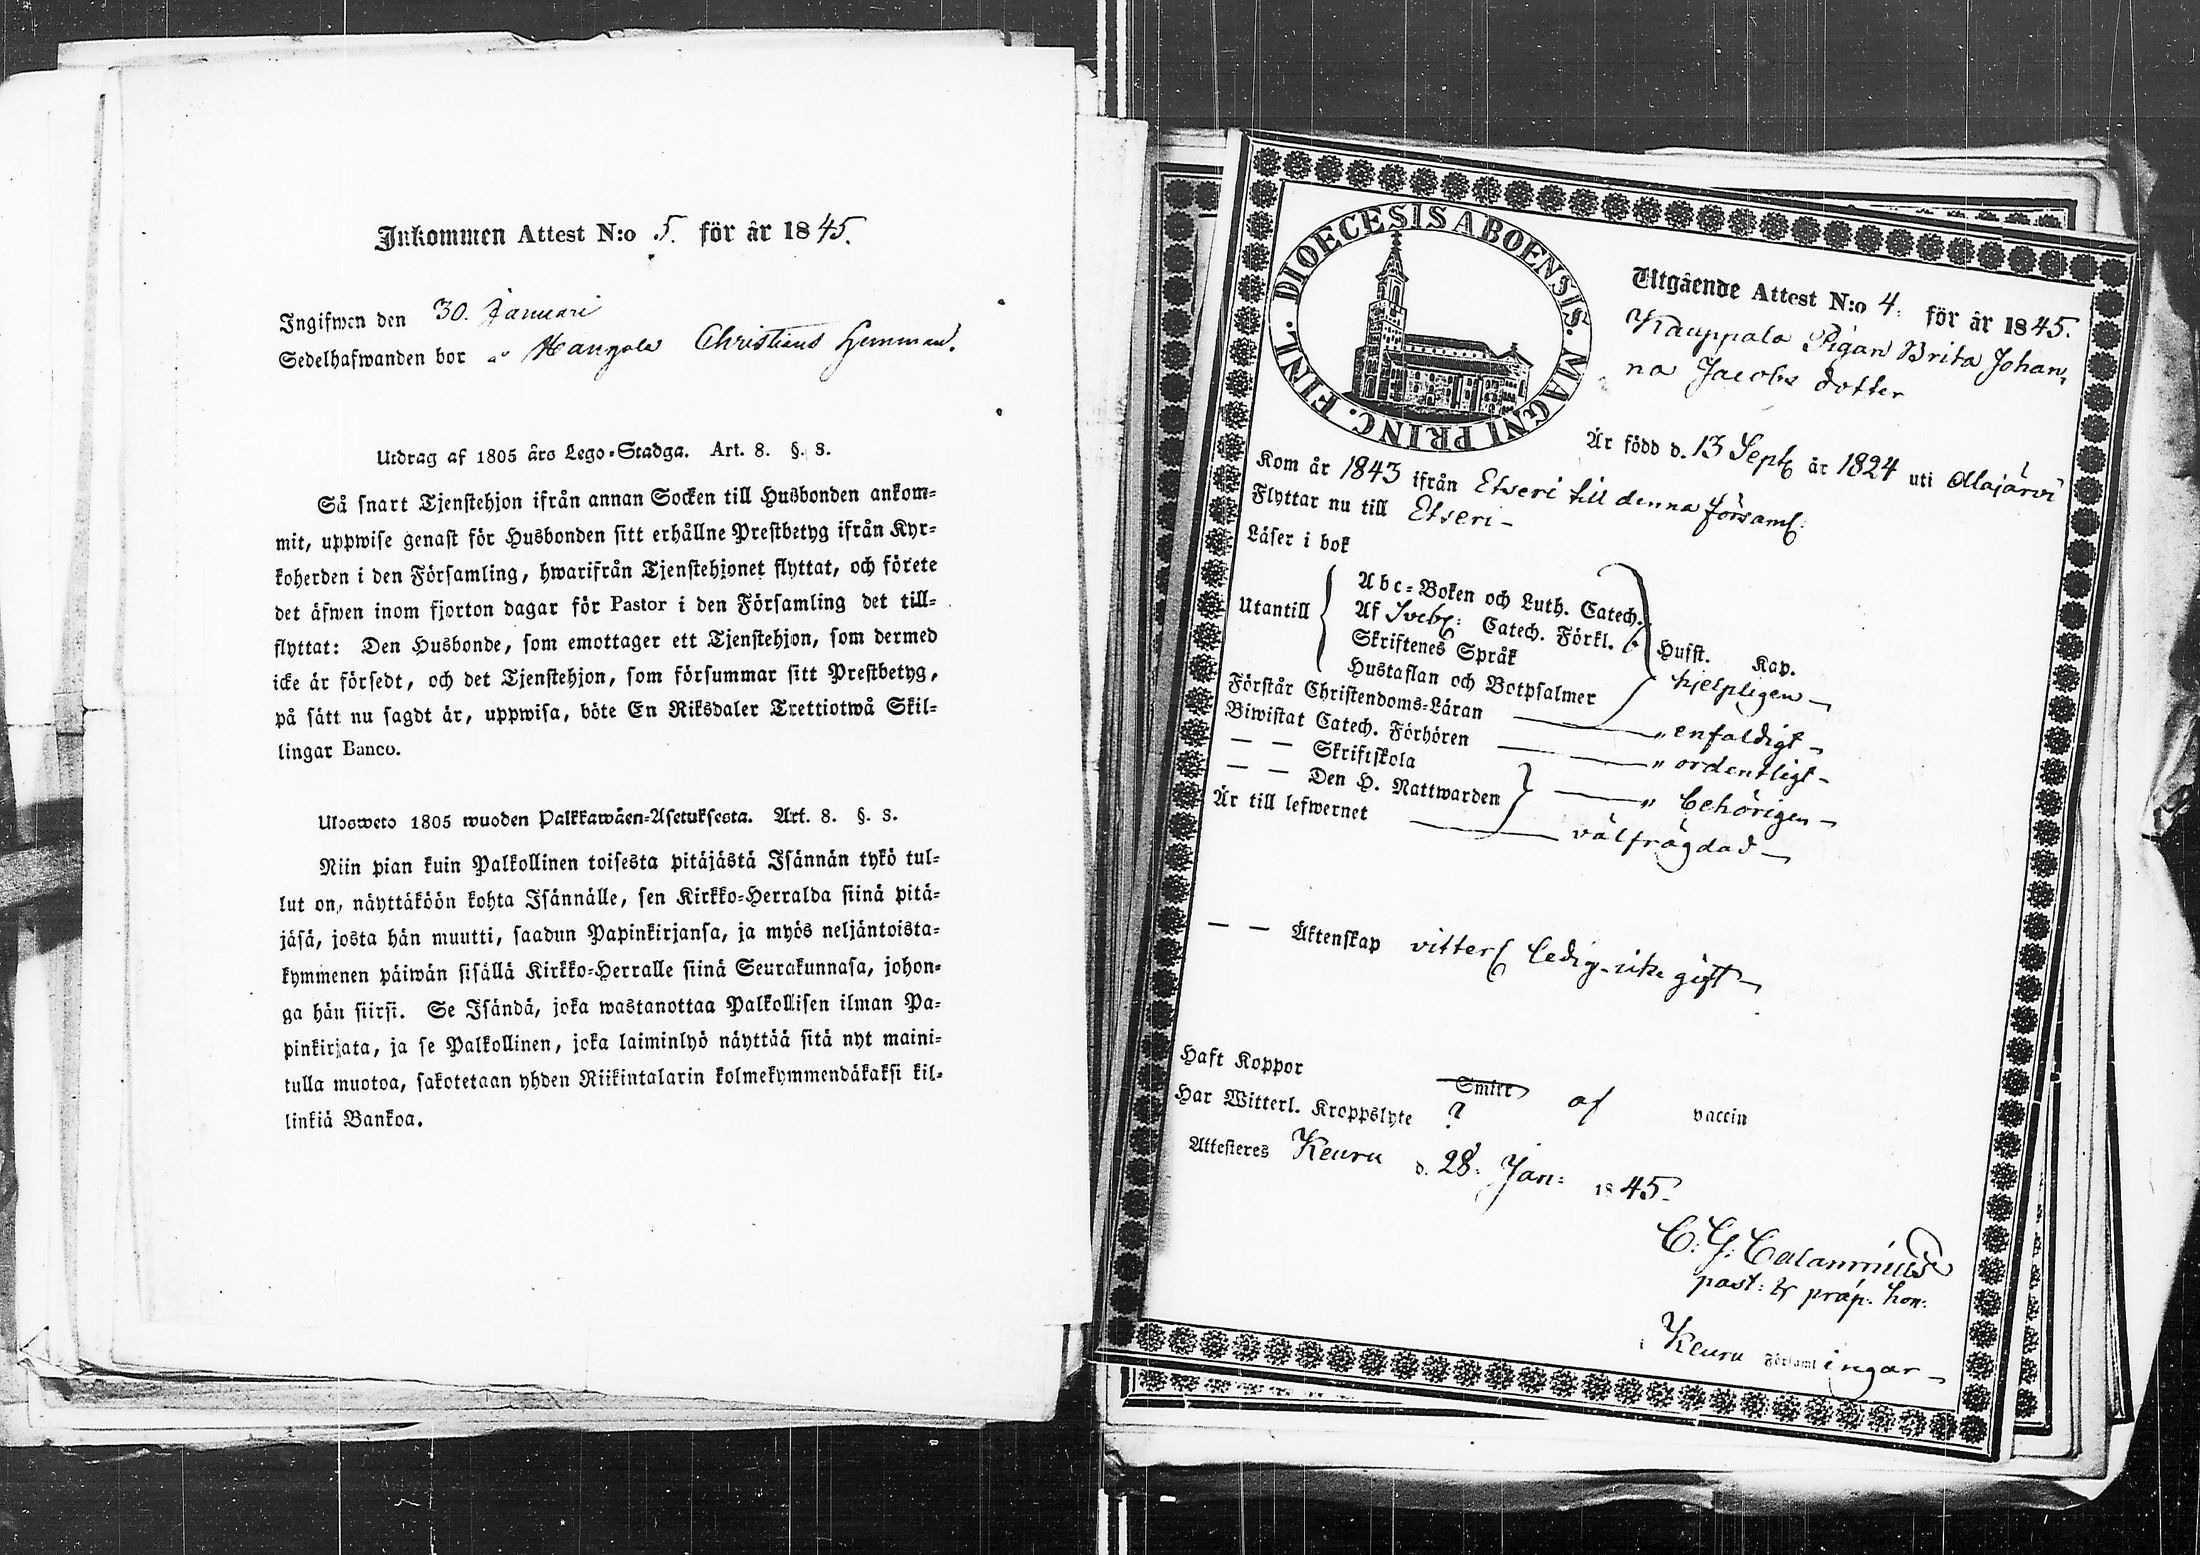 Inkommen Attest N:o 5. för år 1845.
Ingifwen den 30. Januari
Sedelhafwanden bor Christians hemman.
Utdrag af 1805 års Lego-Stadga. Art. 8. §. 3.
Så snart Tjenstehjon ifrån annan Socken till Husbonden ankom-
mit, uppwise genast för Husbonden sitt erhållne Prestbetyg ifrån Kyr-
koherden i den Församling, hwarifrån Tjenstehjonet flyttat, och förete
det äfwen inom fjorton dagar för Pastor i den Församling det till-
flyttat: Den Husbonde, som emottager ett Tjenstehjon, som dermed
icke är försedt, och det Tjenstehjon, som försummar sitt Prestbetyg,
på sätt nu sagdt är, uppwisa, böte En Riksdaler Trettiotwå Skil-
lingar Banco.
Ulosweto 1805 wuoden Palkkawäen-Asetuksesta. Art. 8. §. 3.
Niin pian kuin Palkollinen toisesta pitäjästä Isännän tykö tul-
lut on, näyttäköön kohta Isännälle, sen Kirkko-Herralda siinä pitä-
jäsä, josta hän muutti, saadun Papinkirjansa, ja myös neljäntoista-
kymmenen päiwän sisällä Kirkko-Herralle siinä Seurakunnasa, johon-
ga hän siirsi. Se Isändä, joka wastanottaa Palkollisen ilman Pa-
pinkirjata, ja se Palkollinen, joka laiminlyö näyttää sitä nyt maini-
tulla muotoa, sakotetaan yhden Riikintalarin kolmekymmendäkaksi kil-
linkiä Bankoa.
DIOECESIS ABOENSIS. MAGNI PRINC. FINL.
Utgående Attest N:o 4. för år 1845.
Kauppala Pigan Brita Johan,
na Jacobs dotter
Är född d. 13 Sept år 1824 uti Alajärvi
Kom år 1843 ifrån Etseri till denna församl.
Flyttar nu till Etseri -
Läser i bok
Utantill
Abc-Boken och Luth. Catech.
Af Sveb: Catech. Förkl. Husst. Kap.
Skriftenes Språk
Hustaflan och Botpsalmer hjelpligen -
Förstår Christendoms-Läran " enfaldigt -
Biwistat Catech. Förhören " ordentligt -
— — Skriftskola
— — Den H. Nattwarden " behörigen -
Är till lefwernet välfrägdad -
— — Äktenskap vitterl ledig - icke gift -
Haft Koppor Smitt af vaccin
Har Witterl. Kroppslyte ?
Attesteres Keuru d. 28. Jan: 1845-
C. G. Calamnius
past: & præp. hon:
i Keuru Församlingar -